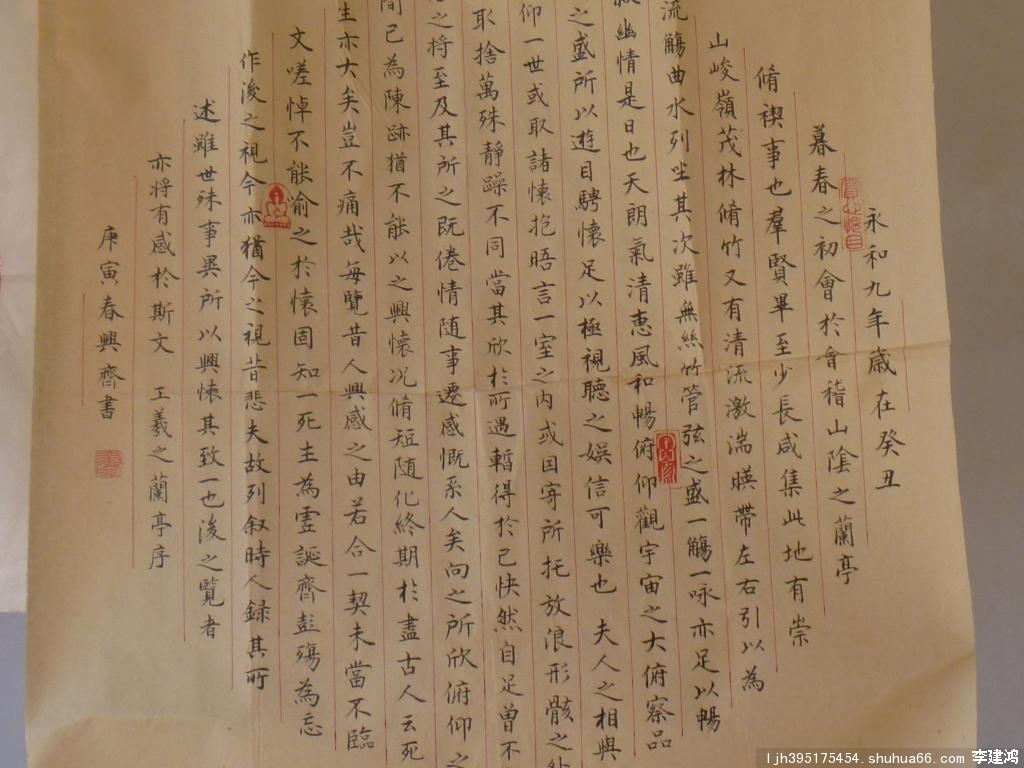 永和九年歲在癸丑
暮春之初會於會稽山陰之蘭亭
脩禊事也羣賢畢至少長咸集此地有崇
山峻嶺茂林脩竹又有清流激湍暎帶左右引以為
流觴曲水列坐其次雖無絲竹管弦之盛一觴一咏亦足以暢
幽情是日也天朗氣清惠風和暢俯仰觀宇宙之大俯察品
之盛所以遊目騁懷足以極視聽之娛信可樂也 夫人之相與
仰一世或取諸懷抱晤言一室之內或因寄所托放浪形骸之外
取捨萬殊靜躁不同當其欣於所遇暫得於己快然自足曾不
之將至及其所之既倦情随事遷感慨系人矣向之所欣俯仰之
間已為陳跡猶不能以之興懷况脩短随化終期於盡古人云死
生亦大矣豈不痛哉每覽昔人興感之由若合一契未當不臨
文嗟悼不能喻之於懷固知一死生為虛誕齊彭殤為忘
作後之視今亦猶今之視昔悲夫故列叙時人録其所
述雖世殊事異所以興懷其致一也後之覽者
亦将有感於斯文 王羲之蘭亭序
庚寅春興齊書
ljh395175454.shuhua66.com 李建鸿